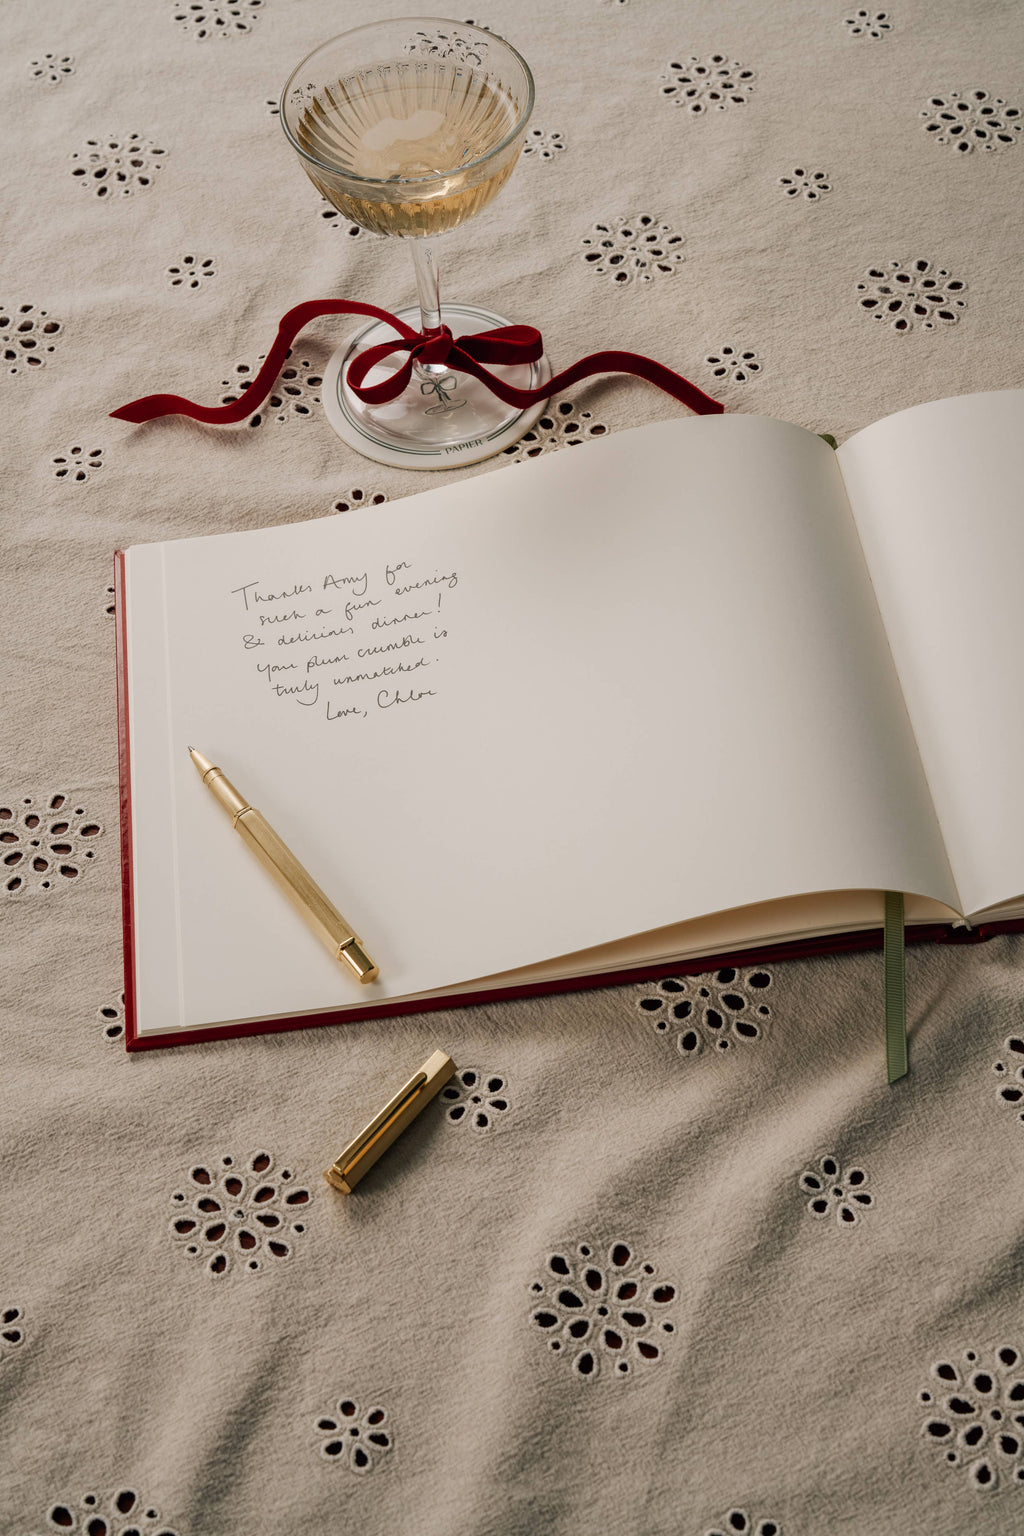 PAPIER
Thanks Amy for
such a fun evening
& delicious dinner!
Your plum crumble is
truly unmatched.
Love, Chloe